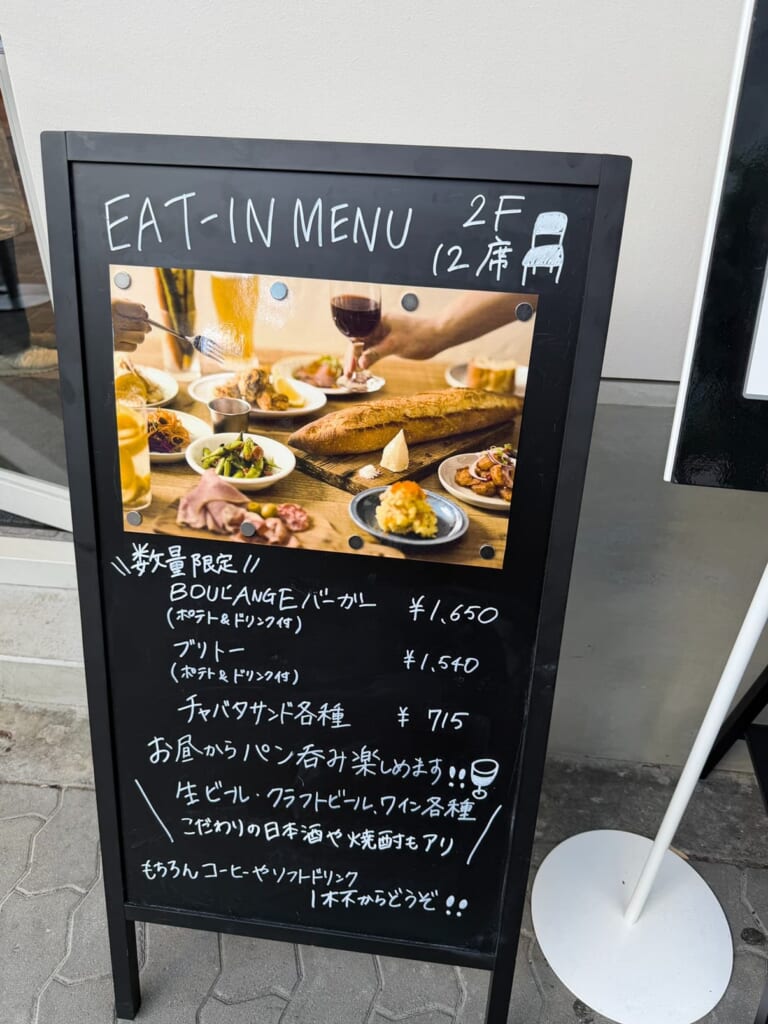 EAT-IN MENU 2F
12席
\\数量限定//
BOUL'ANGEバーガー ¥1,650
(ポテト&ドリンク付)
ブリトー ¥1,540
(ポテト&ドリンク付)
チャバタサンド各種 ¥ 715
お昼からパン呑み楽しめます!!
生ビール・クラフトビール、ワイン各種
こだわりの日本酒や焼酎もアリ
もちろんコーヒーやソフトドリンク
1杯からどうぞ!!